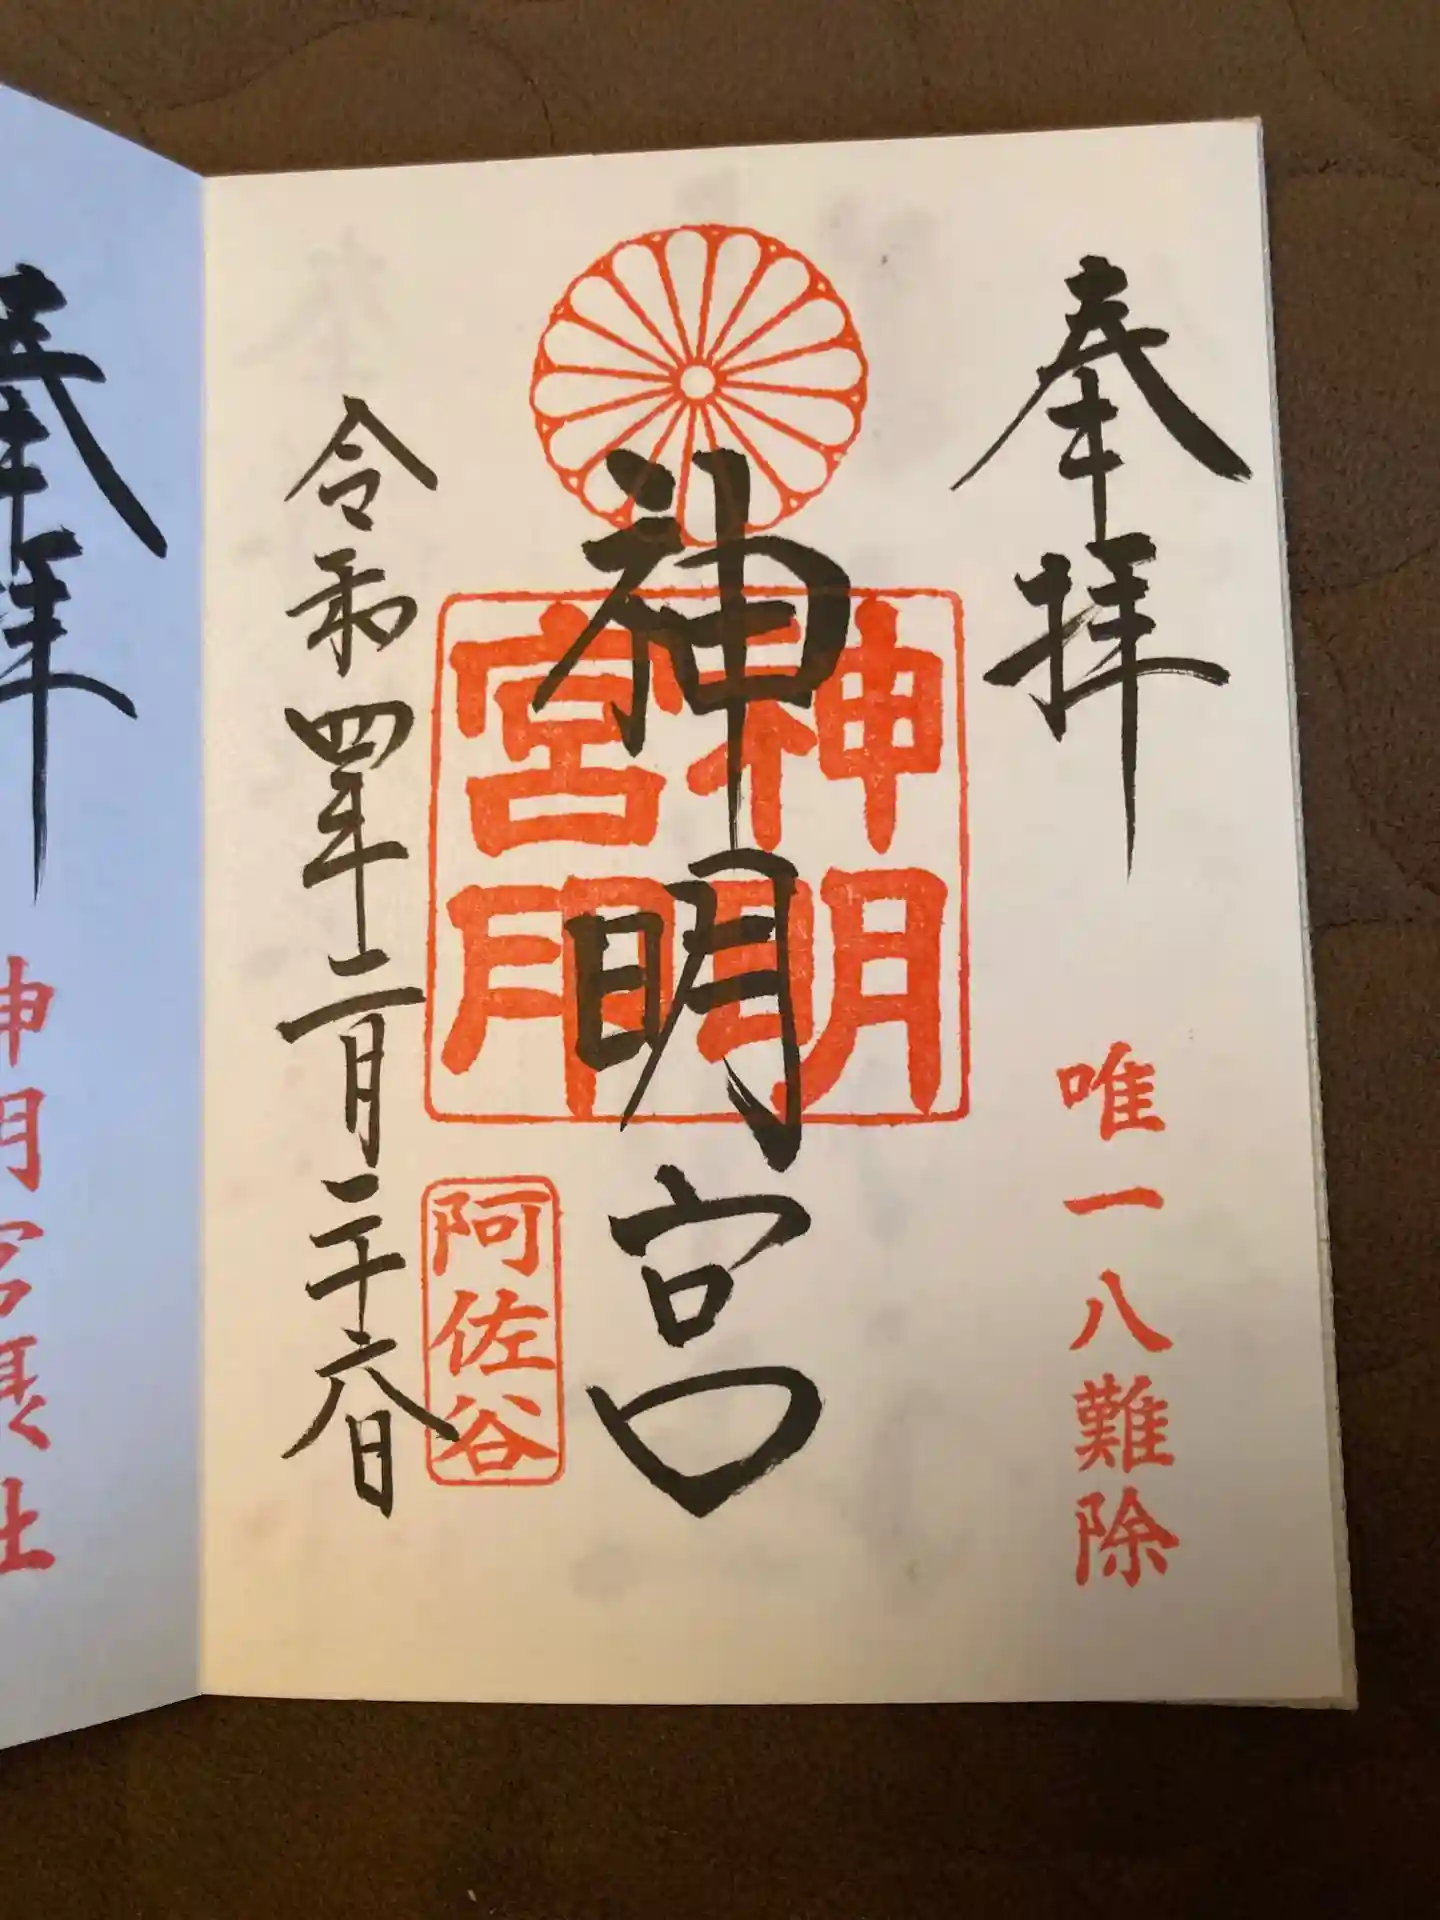 奉拝
唯一八難除
神明宮
神明
宮印
阿佐谷
令和四年二月二十六日
奉拝
神明宮
社